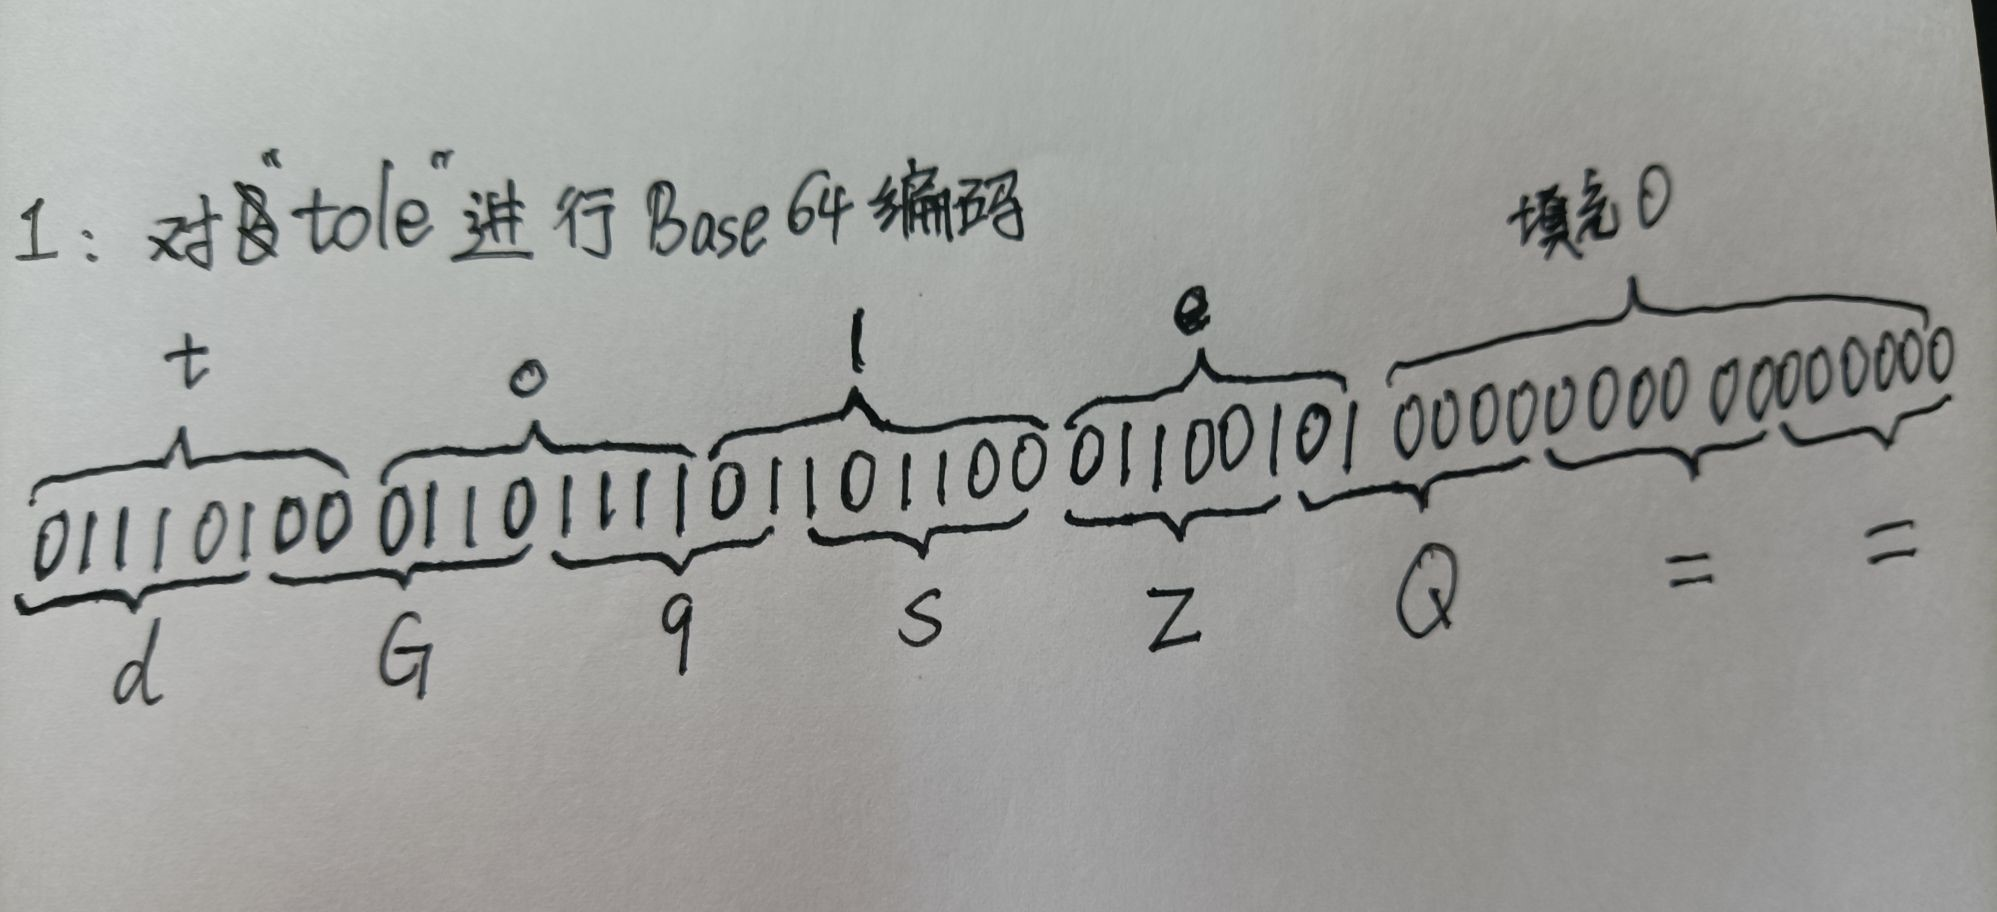 1: 对"tole"进行Base64编码
填充0
t o l e
01110100 01101111 01101100 01100101 0000000000000000
d G 9 s Z Q = =